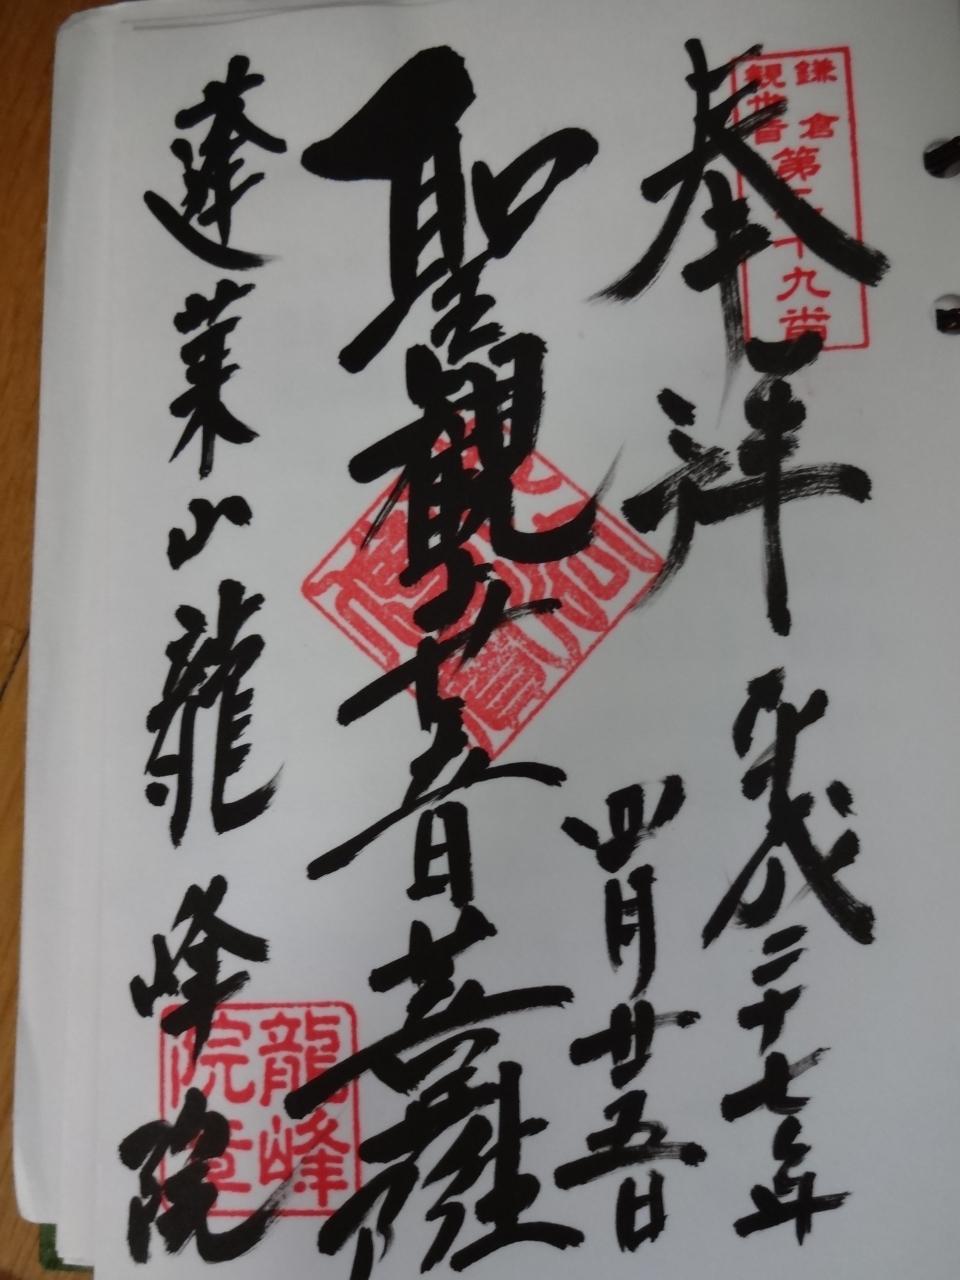 鎌倉
観世音
第二十九番
奉拝
平成二十七年
四月廿五日
聖観世音菩薩
蓬莱山龍峰院
龍峰
院